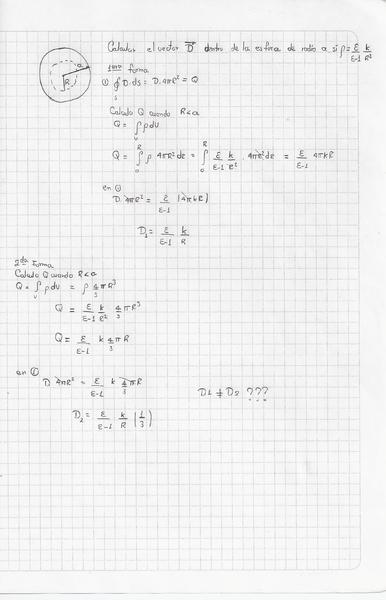 Calcular el vector D dentro de la esfera de radio a si ρ = ε/(ε-1) k/R²
a
R
1era forma
① ∮ D.ds = D.4πR² = Q
s
Calculo Q cuando R<a
Q = ∫ᵥ ρdv
Q = ∫₀ᴿ ρ 4πR²dR = ∫₀ᴿ ε/(ε-1) k/R² 4πR²dR = ε/(ε-1) 4πkR
en ①
D 4πR² = ε/(ε-1) (4πkR)
D₁ = ε/(ε-1) k/R
2da forma
Calculo Q cuando R<a
Q = ∫ᵥ ρdv = ρ 4/3 πR³
Q = ε/(ε-1) k/R² 4/3 πR³
Q = ε/(ε-1) k 4/3 πR
en ①
D 4πR² = ε/(ε-1) k 4/3 πR
D₂ = ε/(ε-1) k/R (1/3)
D1 ≠ D2 ???